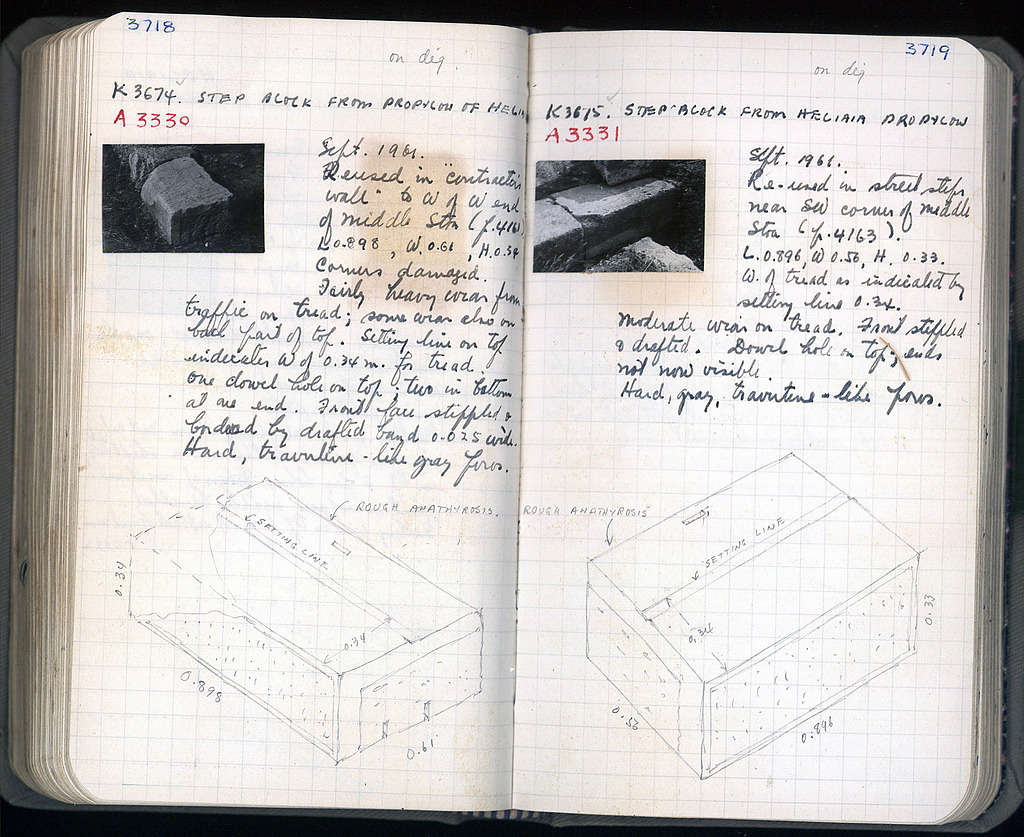 3718
on dig.
K 3674. STEP BLOCK FROM PROPYLON OF HELIA
A 3330
Sept. 1961.
Reused in "contractor's
wall" to W of W end
of middle Stoa (p. 4161)
L 0.898, W. 0.61, H. 0.34
Corners damaged.
Fairly heavy wear from
traffic on tread; some wear also on
back part of top. Setting line on top
indicates W of 0.34 m. for tread.
One dowel hole on top; two in bottom
at one end. Front face stippled &
bordered by drafted band 0.025 wide.
Hard, travertine-like gray poros.
ROUGH ANATHYROSIS.
SETTING LINE
0.34
0.34
0.898
0.61
3719
on dig
K 3675. STEP BLOCK FROM HELIAIA PROPYLON
A 3331
Sept. 1961.
Re-used in street steps
near SW corner of middle
Stoa (p. 4163).
L. 0.896, W 0.56, H. 0.33.
W. of tread as indicated by
setting line 0.34.
Moderate wear on tread. Front stippled
& drafted. Dowel hole on top; ends
not now visible.
Hard, gray, travertine-like poros.
ROUGH ANATHYROSIS
SETTING LINE
0.34
0.33
0.56
0.896